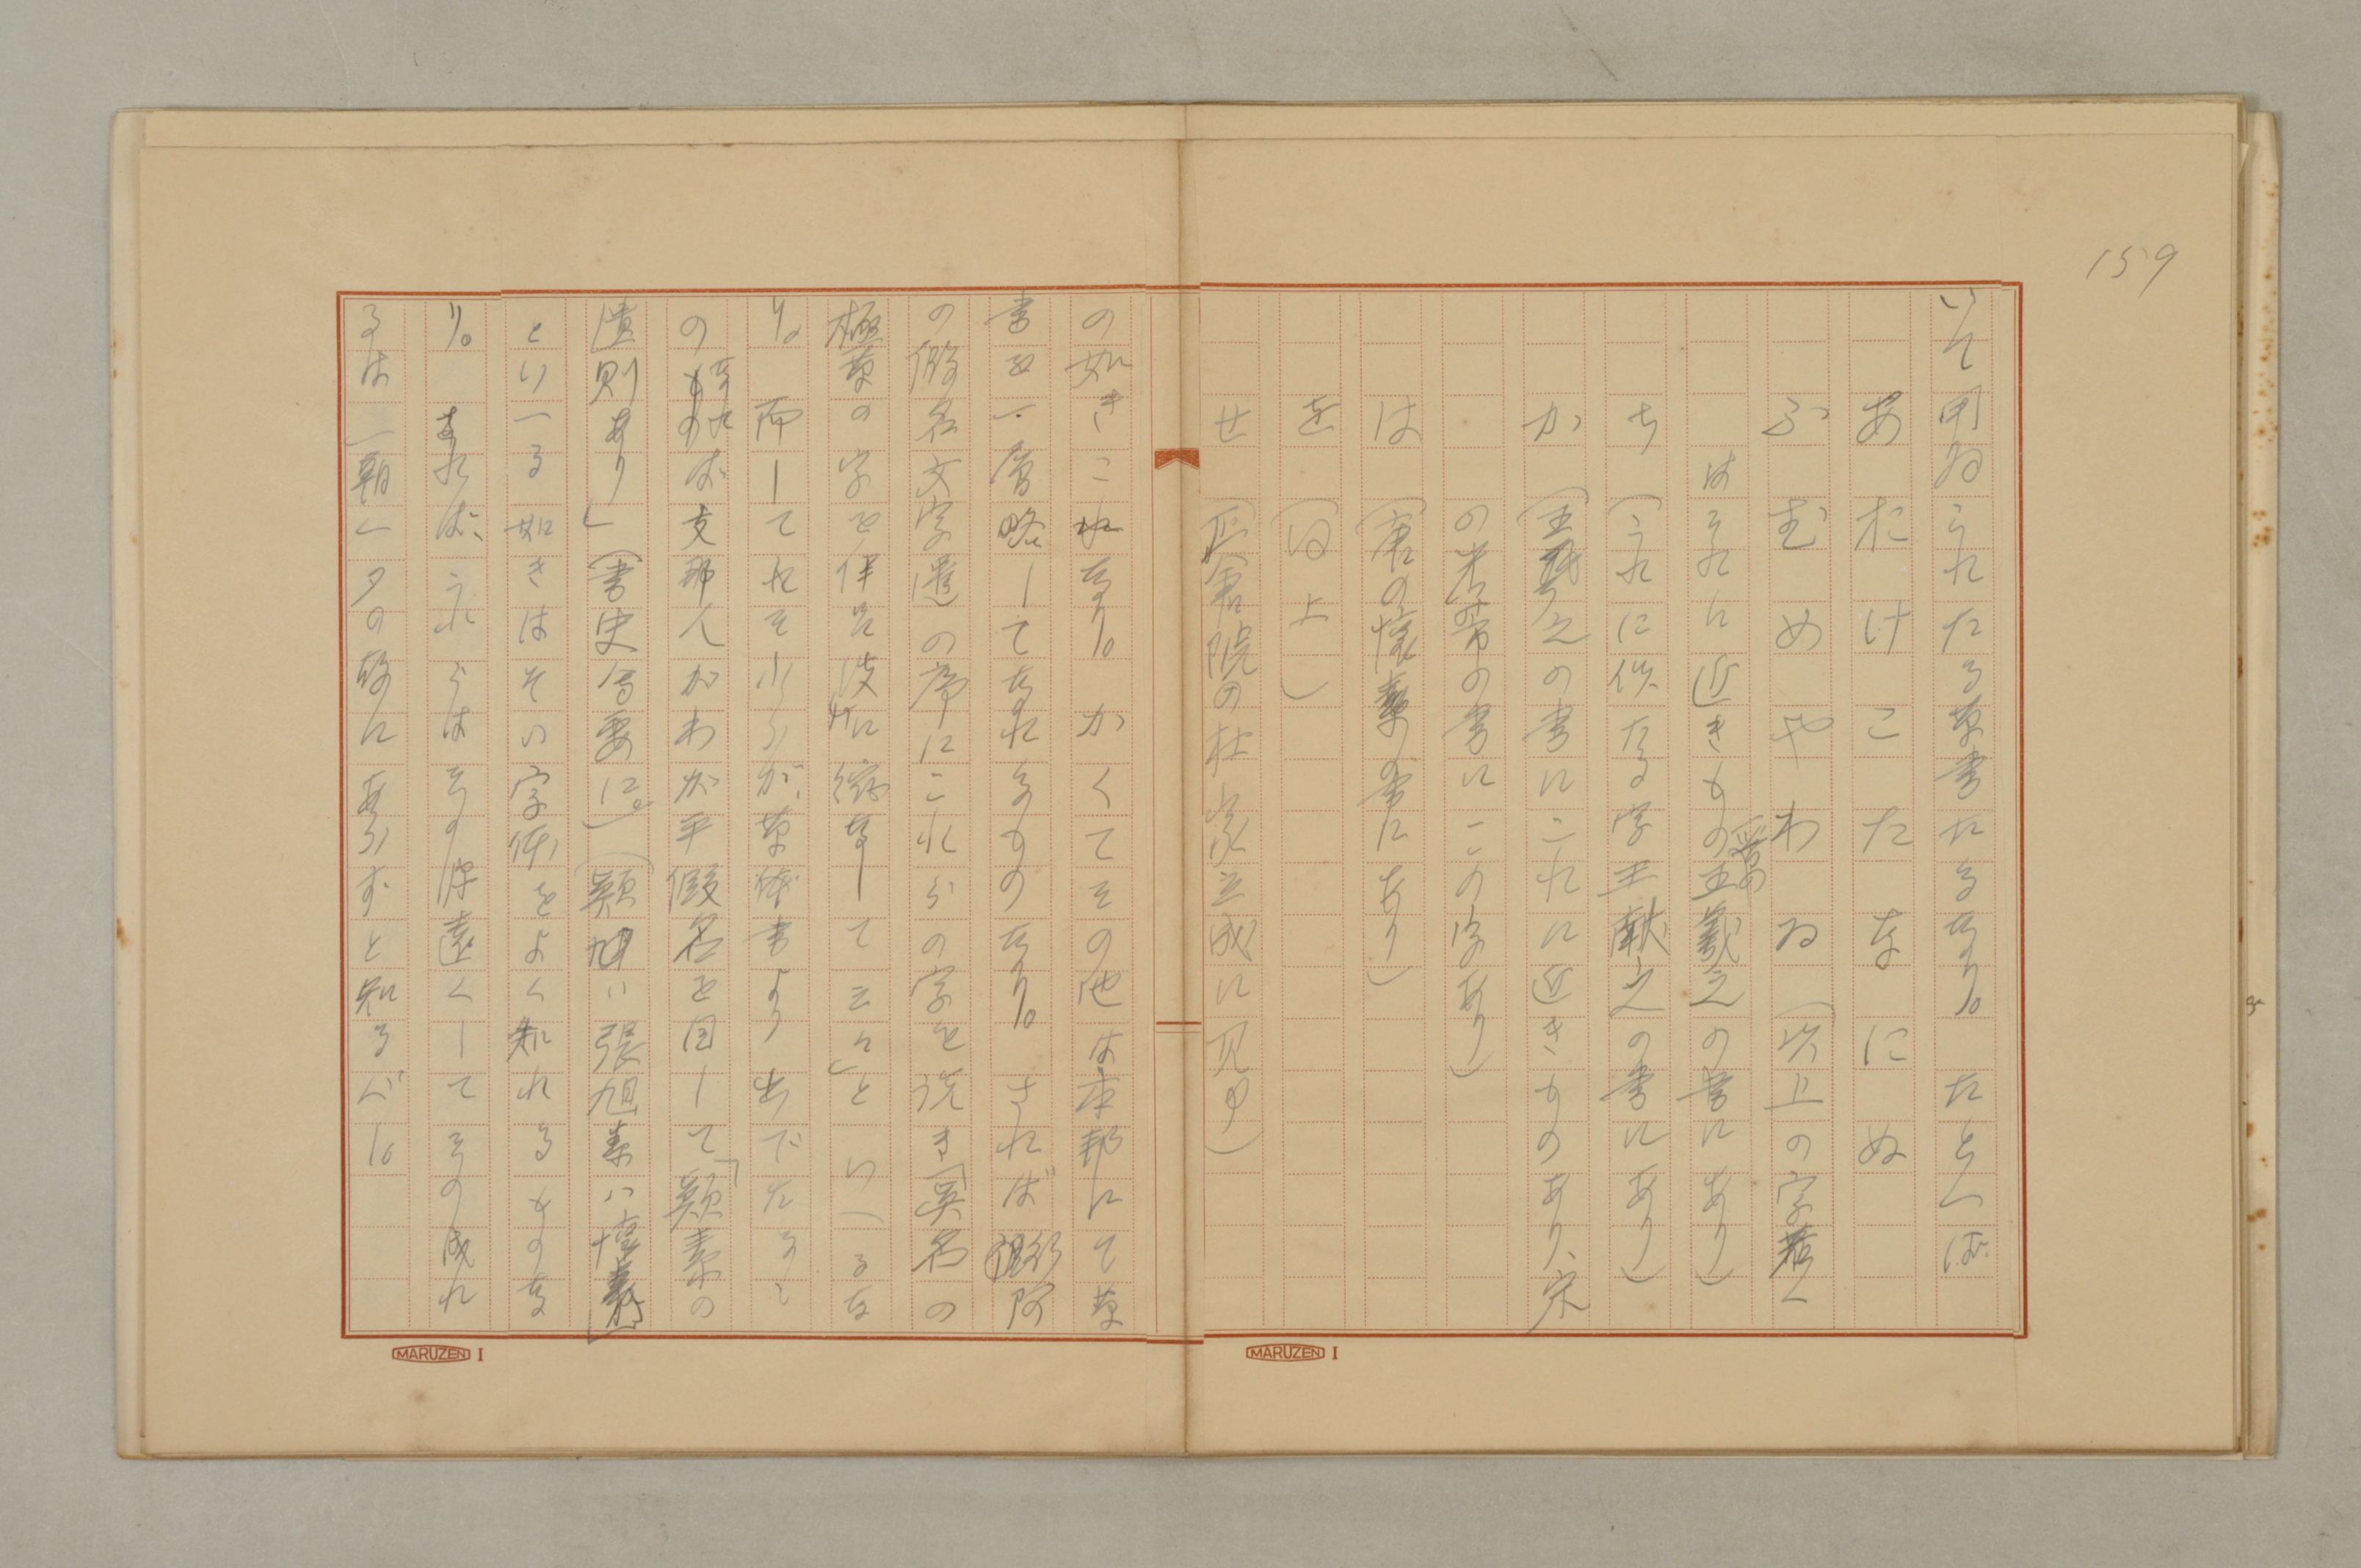 159
いて用ゐられたる草書たるなり。たとへば
あおけこたなにぬ
ぶむめやわゐ（以上の字若くは
はそれに近きもの晋の王羲之の書にあり）
ち（これに似たる字王献之の書にあり）
か（王羲之の書にこれに近きものあり、宋
の米芾の書にこの字あり）
は（唐の懐素の書にあり）
を（同上）
せ（正倉院の杜家立成に見ゆ）
の如きこれなり。かくてその他は本邦にて草
書を一層略してなれるものなり。されば
の假名文字遣の序にこれらの字を説き「異名の
極草の字を伴
り。而してそれらが草体書より出でたるも
のなれば支那人がわが平假名を目して「顛素の
遺則あり」（書史会要に。）（顛旭ハ張旭素ハ懐素）
といへる如きはその字体をよく知れるものな
り。されば、これらはその源遠くしてその成れ
るは一朝一夕の故にあらずと知るべし。
MARUZEN I
MARUZEN I